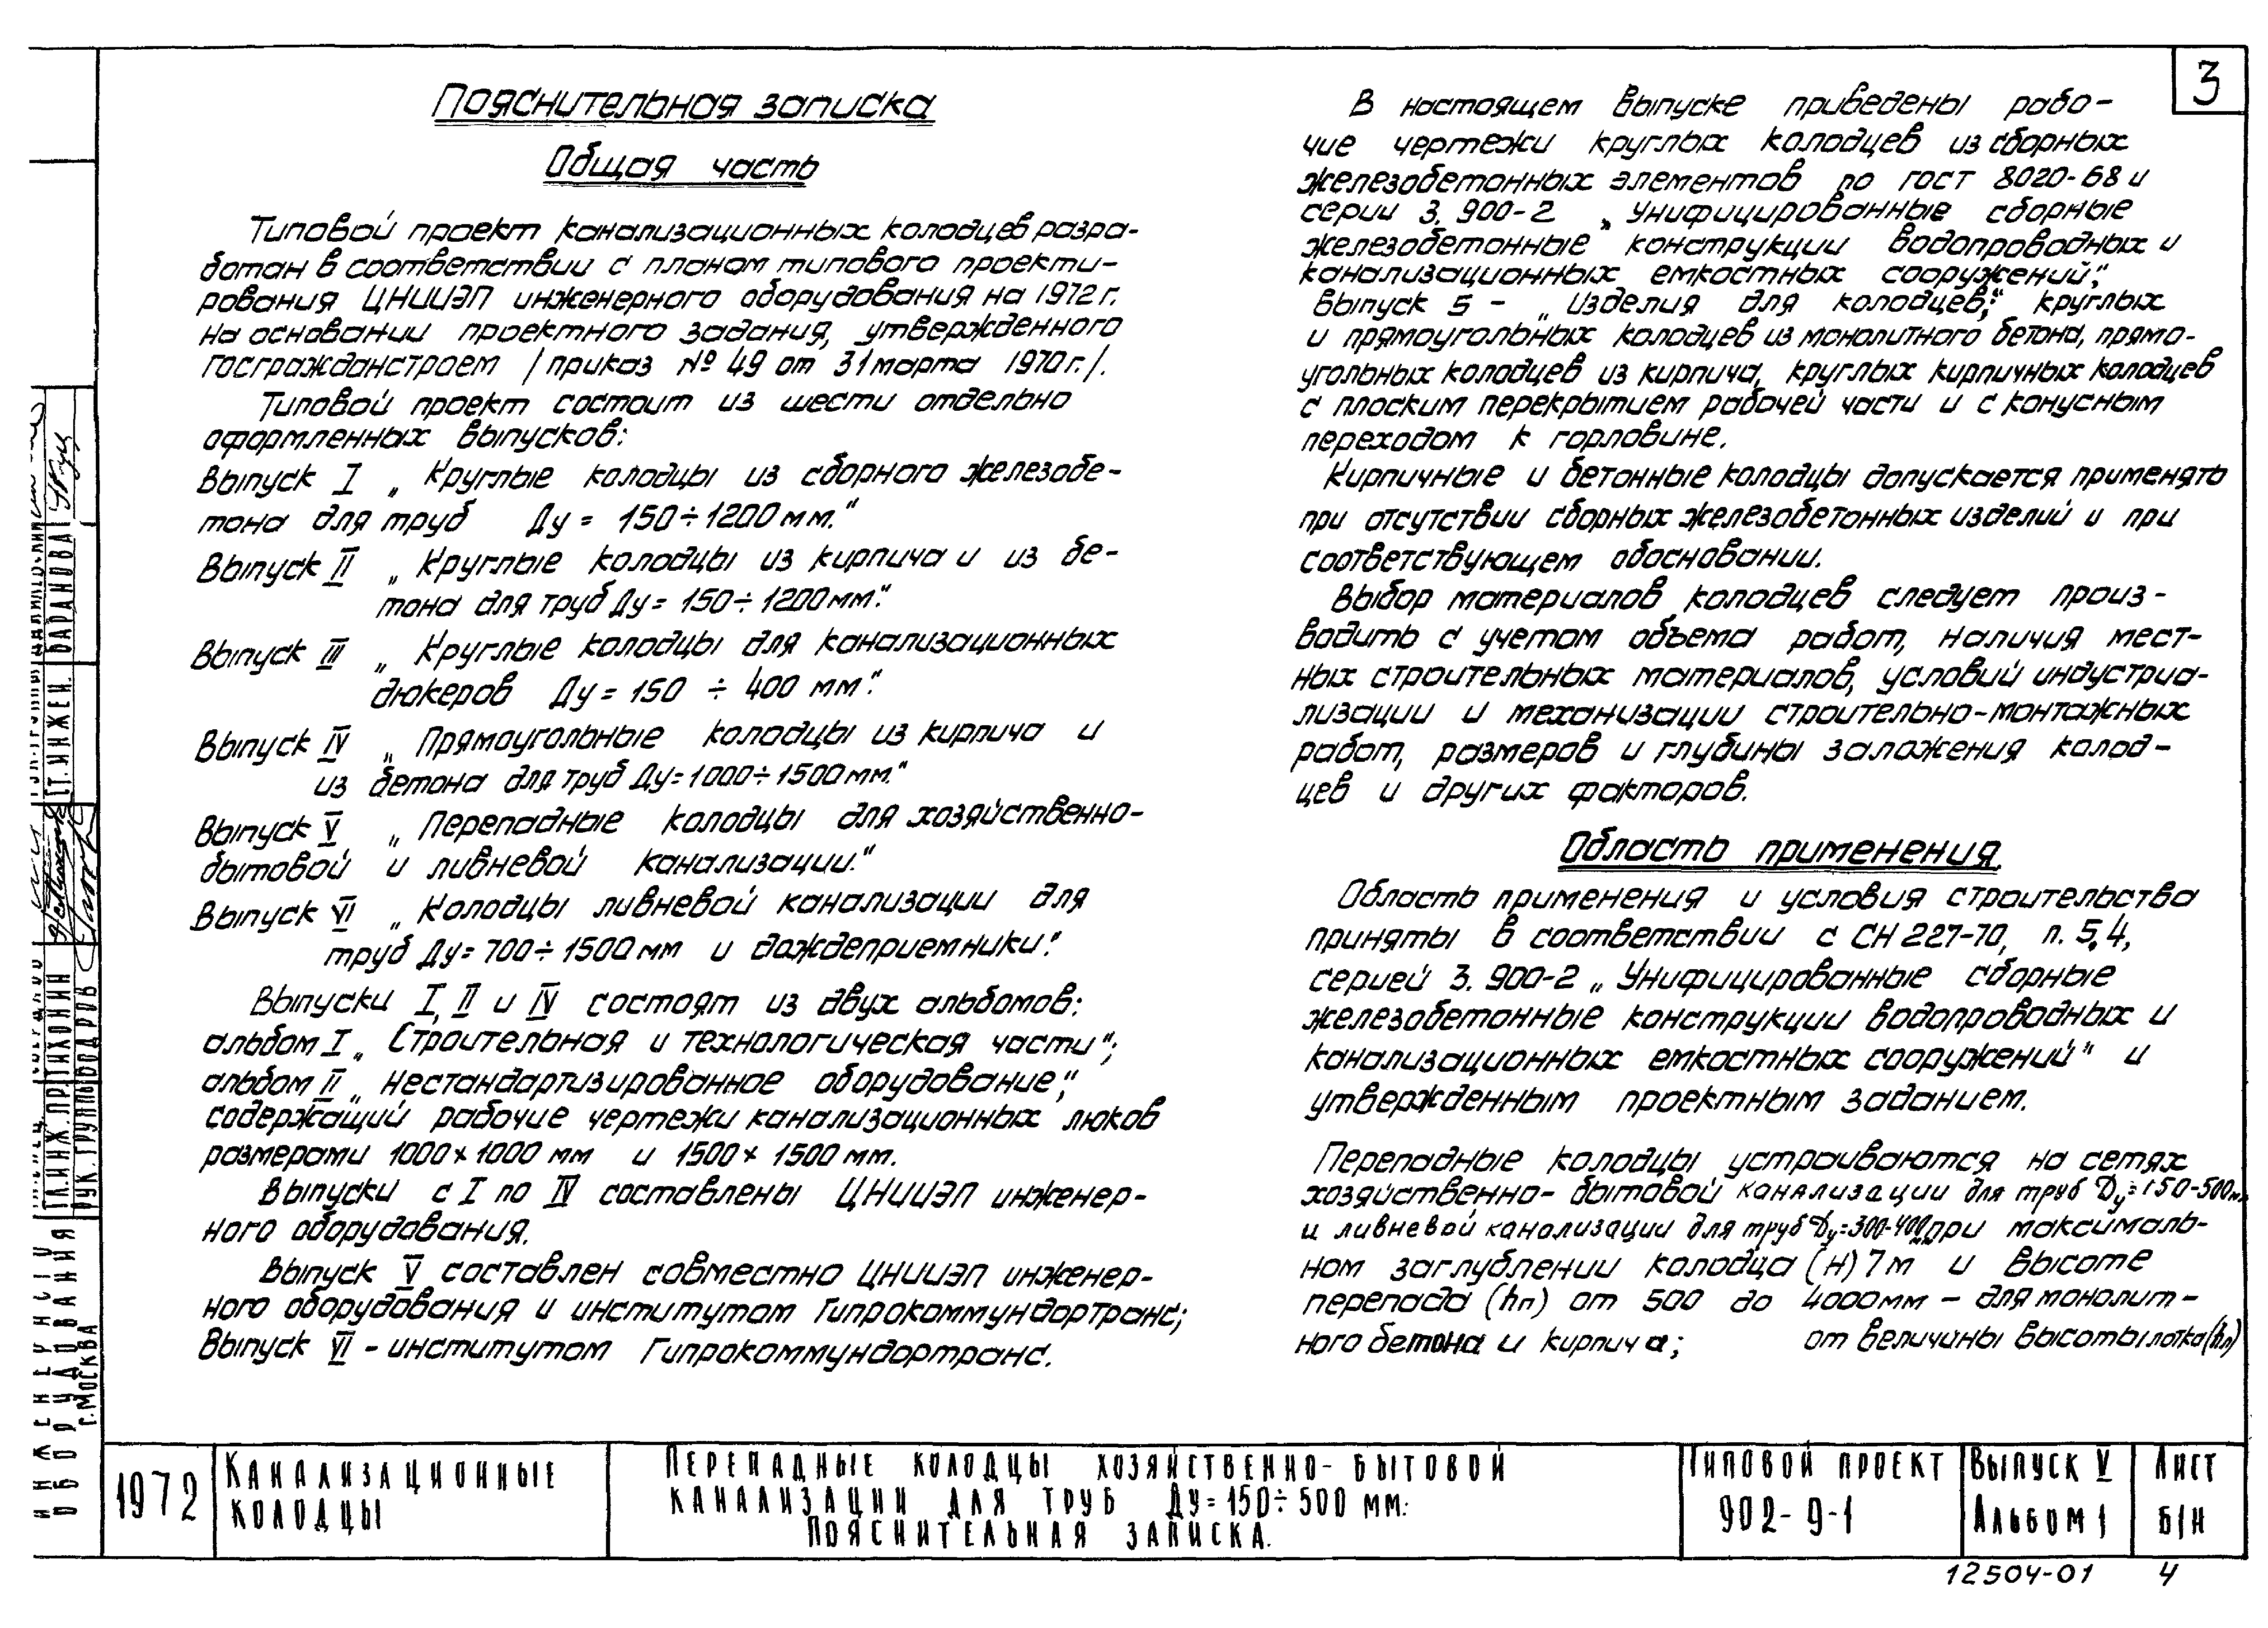 3
Пояснительная записка
Общая часть
Типовой проект канализационных колодцев разра-
ботан в соответствии с планом типового проекти-
рования ЦНИИЭП инженерного оборудования на 1972 г.
на основании проектного задания, утвержденного
Госгражданстроем /приказ № 49 от 31 марта 1970 г./.
Типовой проект состоит из шести отдельно
оформленных выпусков:
Выпуск I „Круглые колодцы из сборного железобе-
тона для труб Ду = 150÷1200 мм."
Выпуск II „Круглые колодцы из кирпича и из бе-
тона для труб Ду = 150÷1200 мм."
Выпуск III „Круглые колодцы для канализационных
дюкеров Ду = 150 ÷ 400 мм."
Выпуск IV „Прямоугольные колодцы из кирпича и
из бетона для труб Ду = 1000÷1500 мм."
Выпуск V „Перепадные колодцы для хозяйственно-
бытовой и ливневой канализации."
Выпуск VI „Колодцы ливневой канализации для
труб Ду = 700÷1500 мм и дождеприемники."
Выпуски I, II и IV состоят из двух альбомов:
альбом I „Строительная и технологическая части";
альбом II „Нестандартизированное оборудование",
содержащий рабочие чертежи канализационных люков
размерами 1000×1000 мм и 1500×1500 мм.
Выпуски с I по IV составлены ЦНИИЭП инженер-
ного оборудования.
Выпуск V составлен совместно ЦНИИЭП инженер-
ного оборудования и институтом Гипрокоммундортранс;
Выпуск VI - институтом Гипрокоммундортранс.
В настоящем выпуске приведены рабо-
чие чертежи круглых колодцев из сборных
железобетонных элементов по ГОСТ 8020-68 и
серии 3.900-2 „Унифицированные сборные
железобетонные конструкции водопроводных и
канализационных емкостных сооружений",
выпуск 5 - „Изделия для колодцев"; круглых
и прямоугольных колодцев из монолитного бетона, прямо-
угольных колодцев из кирпича, круглых кирпичных колодцев
с плоским перекрытием рабочей части и с конусным
переходом к горловине.
Кирпичные и бетонные колодцы допускается применять
при отсутствии сборных железобетонных изделий и при
соответствующем обосновании.
Выбор материалов колодцев следует произ-
водить с учетом объема работ, наличия мест-
ных строительных материалов, условий индустриа-
лизации и механизации строительно-монтажных
работ, размеров и глубины заложения колод-
цев и других факторов.
Область применения.
Область применения и условия строительства
приняты в соответствии с СН 227-70, п. 5.4,
серией 3.900-2 „Унифицированные сборные
железобетонные конструкции водопроводных и
канализационных емкостных сооружений" и
утвержденным проектным заданием.
Перепадные колодцы устраиваются на сетях
хозяйственно-бытовой канализации для труб Dу=150-500мм
и ливневой канализации для труб Dу=300-400мм при максималь-
ном заглублении колодца (Н) 7 м и высоте
перепада (hп) от 500 до 4000 мм - для монолит-
ного бетона и кирпича; от величины высоты лотка (hл)
СТ. ИНЖЕН. БАРАНОВА
ГЛ. ИНЖ. ПР. ТИХОНИН
РУК. ГРУППЫ БОДРОВ
ОБОРУДОВАНИЯ
г. МОСКВА
1972
КАНАЛИЗАЦИОННЫЕ
КОЛОДЦЫ
ПЕРЕПАДНЫЕ КОЛОДЦЫ ХОЗЯЙСТВЕННО-БЫТОВОЙ
КАНАЛИЗАЦИИ ДЛЯ ТРУБ Ду=150÷500 ММ.
ПОЯСНИТЕЛЬНАЯ ЗАПИСКА.
ТИПОВОЙ ПРОЕКТ
902-9-1
ВЫПУСК V
АЛЬБОМ 1
ЛИСТ
Б/Н
12504-01 4